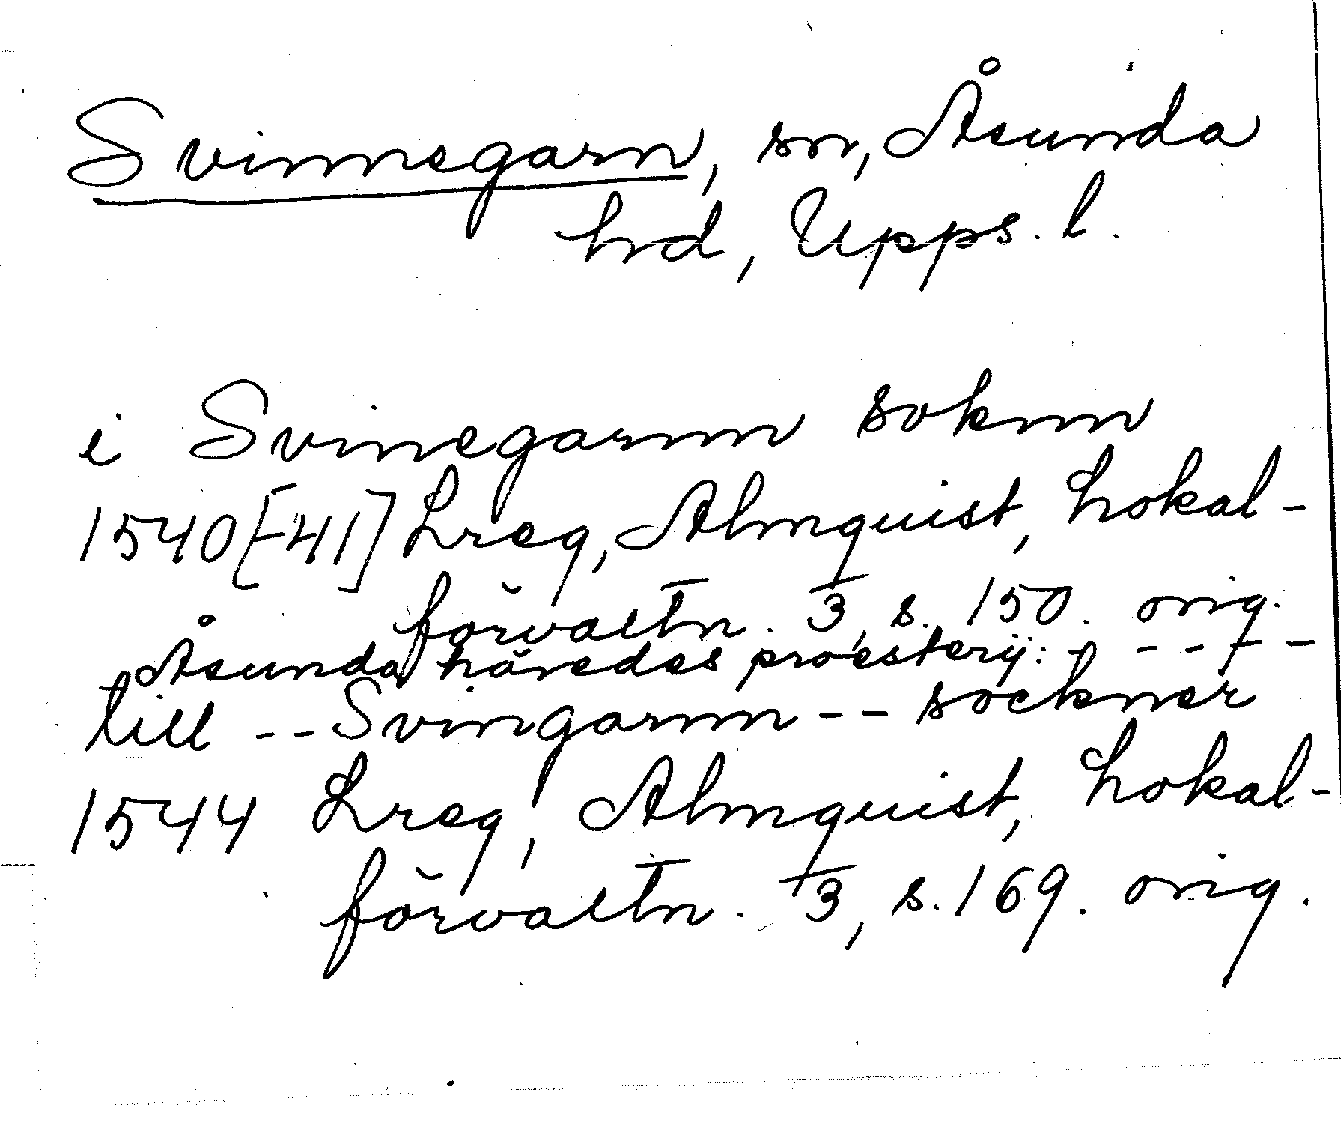 Svinnegarn, sn, Åsunda
hd, Upps. l.
i Svinegarnn soknn
1540[-41] Lreg, Almquist, Lokal-
förvaltn. 3, s. 150. orig.
Åsunda häredes proesterij: - - - - -
till -- Svingarnn -- sockner
1544 Lreg, Almquist, Lokal-
förvaltn. 3, s. 169. orig.